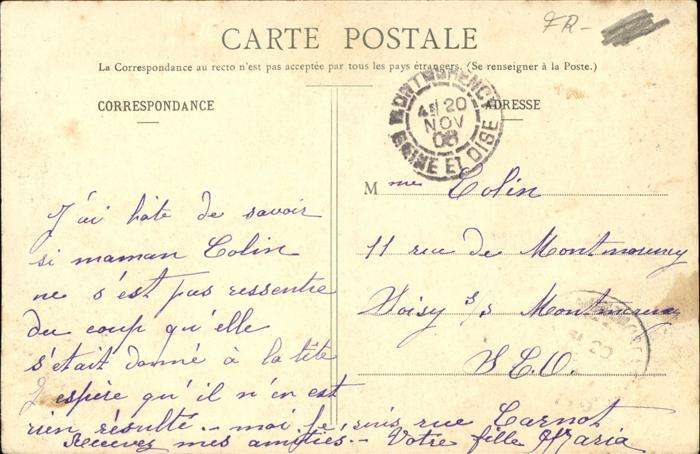 FR-
CARTE POSTALE
La Correspondance au recto n'est pas acceptée par tous les pays étrangers. (Se renseigner à la Poste.)
CORRESPONDANCE
ADRESSE
MONTMORENCY
20
NOV
08
SEINE ET OISE
J'ai hâte de savoir
si maman Colin
ne s'est pas ressentie
du coup qu'elle
s'était donné à la tête
J'espère qu'il n'en est
rien résulté.- moi je suis rue Carnot
Recevez mes amitiés.- Votre fille Maria
Mme Colin
11 rue de Montmorency
Soisy s/s Montmorency
S. & O.
20